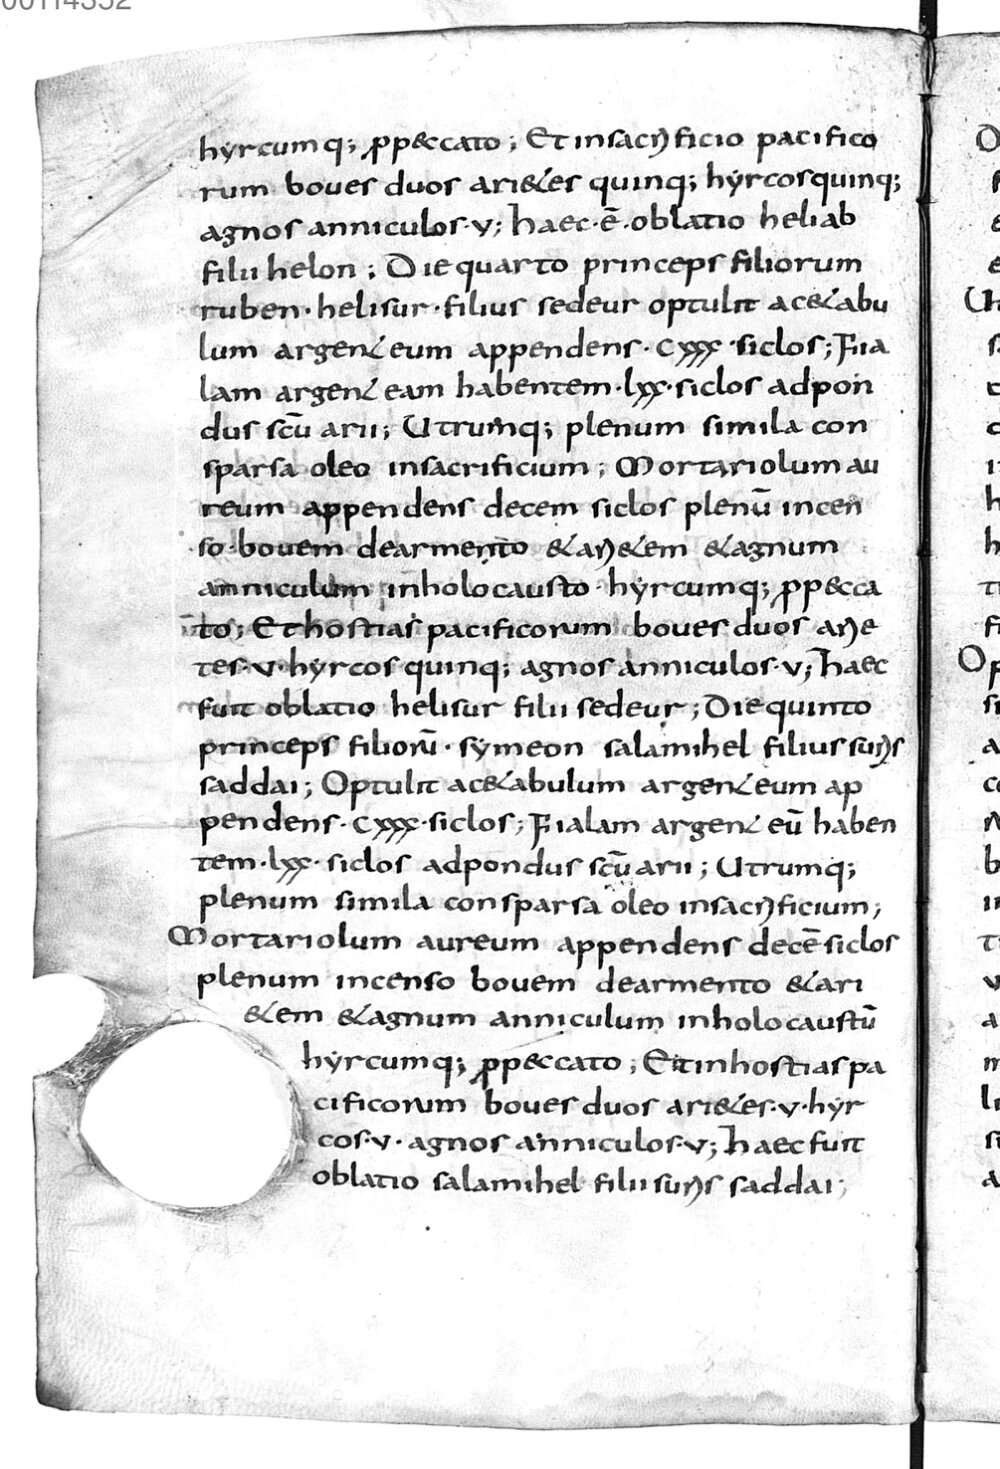 00114352
hyrcumq; ꝓpeccato; Et insacrificio pacifico
rum boues duos ari&es quinq; hyrcosquinq;
agnos anniculos·v; haec·ē·oblatio heliab
filii helon; Die quarto princeps filiorum
ruben·helisur·filius sedeur optulit ac&abu
lum argenteum appendens·cxxx·siclos; Fia
lam argenteam habentem·lxx·siclos adpon
dus scūarii; Utrumq; plenum simila con
sparsa oleo insacrificium; Mortariolum au
reum appendens decem siclos plenū incen
so·bouem dearmento &ari&em &agnum
anniculum inholocausto hyrcumq; ꝓpecca
to; Et hostias pacificorum boues duos arie
tes·v·hyrcos quinq; agnos anniculos·v; haec
fuit oblatio helisur filii sedeur; Die quinto
princeps filiorū·symeon salamihel filius suris
saddai; Optulit ac&abulum argenteum ap
pendens·cxxx·siclos; Fialam argenteū haben
tem·lxx·siclos adpondus scūarii; Utrumq;
plenum simila consparsa oleo insacrificium;
Mortariolum aureum appendens decē siclos
plenum incenso bouem dearmento &ari
&em &agnum anniculum inholocaustū
hyrcumq; ꝓpeccato; Et inhostias pa
cificorum boues duos ari&es·v·hyr
cos·v·agnos anniculos·v; haec fuit
oblatio salamihel filii suris saddai;